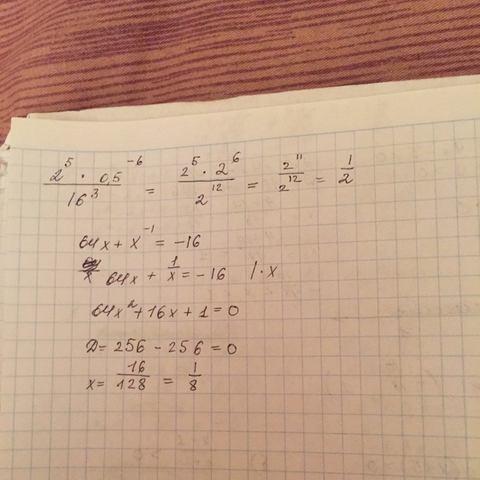 2⁵ · 0,5⁻⁶ / 16³ = 2⁵ · 2⁶ / 2¹² = 2¹¹ / 2¹² = 1/2
64x + x⁻¹ = -16
64x + 1/x = -16 | · x
64x² + 16x + 1 = 0
D = 256 - 256 = 0
x = 16/128 = 1/8